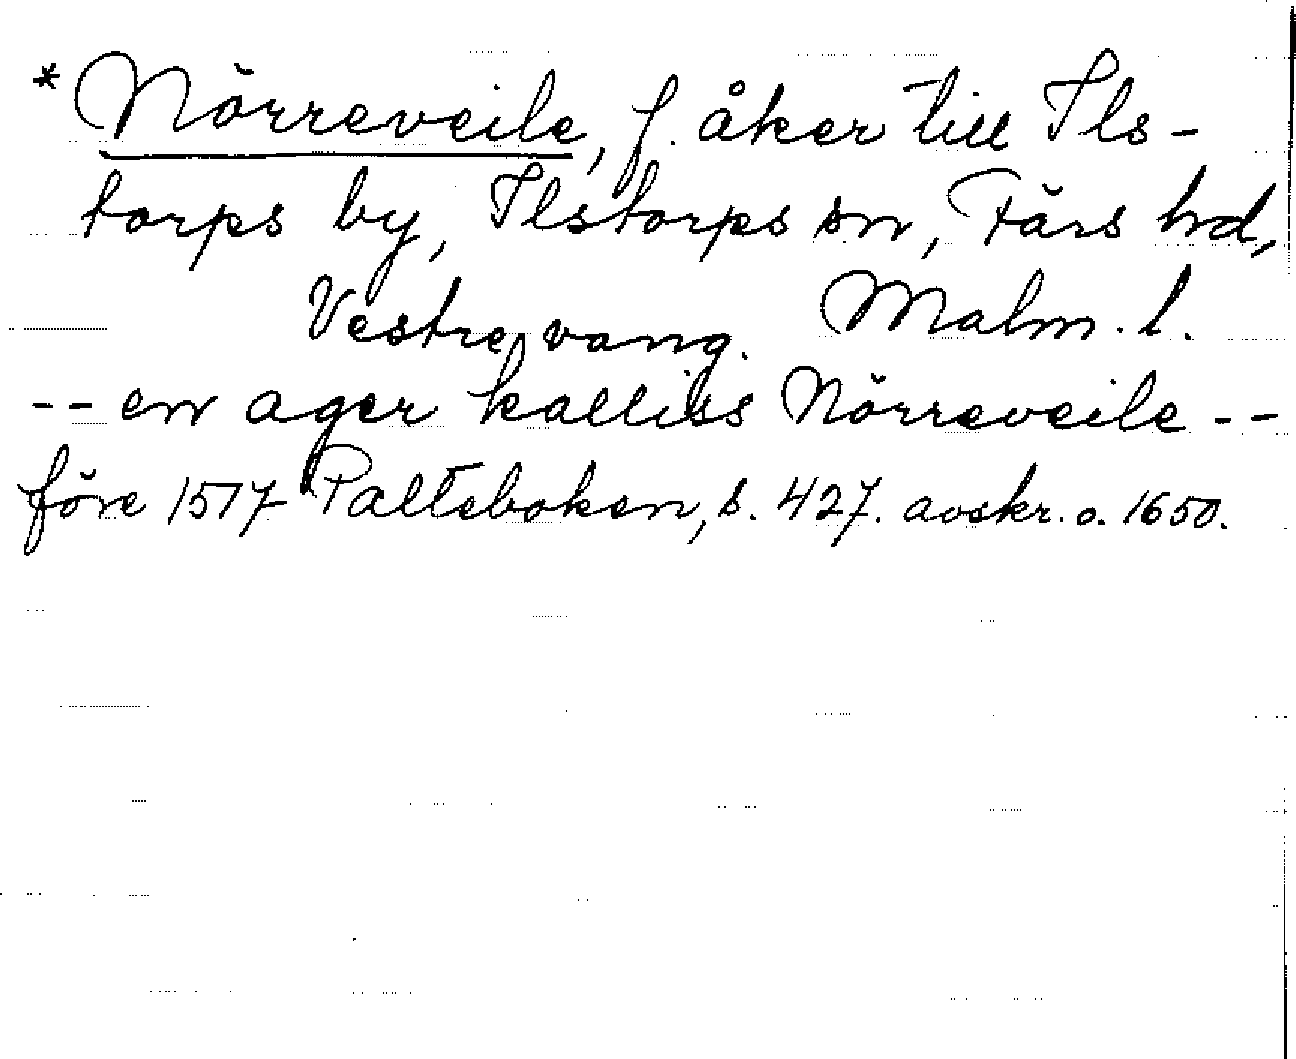 * Nörreveile, f. åker till Ils-
torps by, Ilstorps sn, Färs hd,
Vestre vang. Malm. l.
-- en ager kalliss Nörreveile --
före 1517 Palteboken, s. 427. avskr. o. 1650.